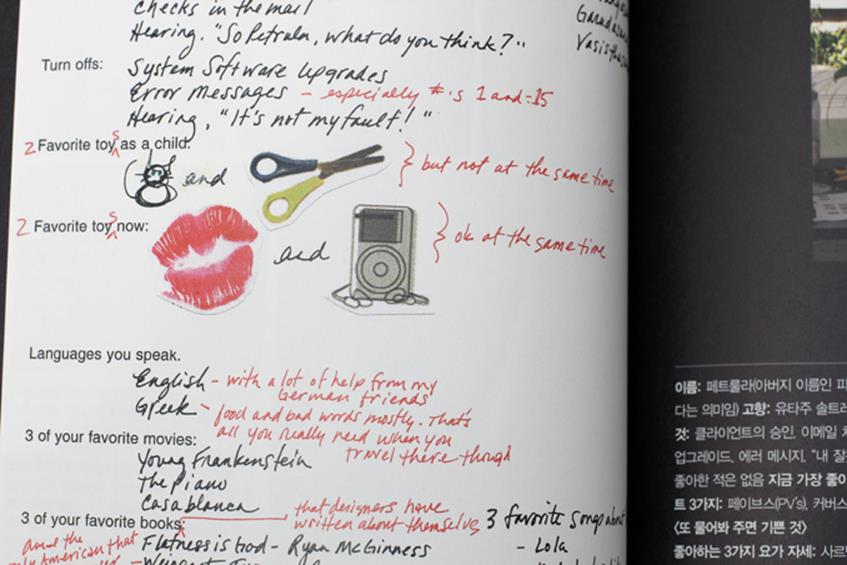 checks in the mail
Hearing. "So Petrula, what do you think?"
Turn offs:
System Software Upgrades
Error Messages - especially #'s 1 and -15
Hearing, "It's not my fault!"
2 Favorite toys as a child:
and
but not at the same time
2 Favorite toys now:
and
ok at the same time
Languages you speak.
English - with a lot of help from my
German friends
Greek - food and bad words mostly. That's
all you really need when you
travel there though
3 of your favorite movies:
Young Frankenstein
The Piano
Casablanca
3 of your favorite books:
that designers have
written about themselves
and the
American that
Flatness is God - Ryan McGinness
3 favorite songs about
- Lola
이름: 페트룰라(아버지 이름인 피
다는 의미임) 고향: 유타주 솔트레
것: 클라이언트의 승인, 이메일 체
업그레이드, 에러 메시지, "내 잘
좋아한 적은 없음 지금 가장 좋아
트 3가지: 페이브스(PV's), 커버스
<또 물어봐 주면 기쁜 것>
좋아하는 3가지 요가 자세: 사르